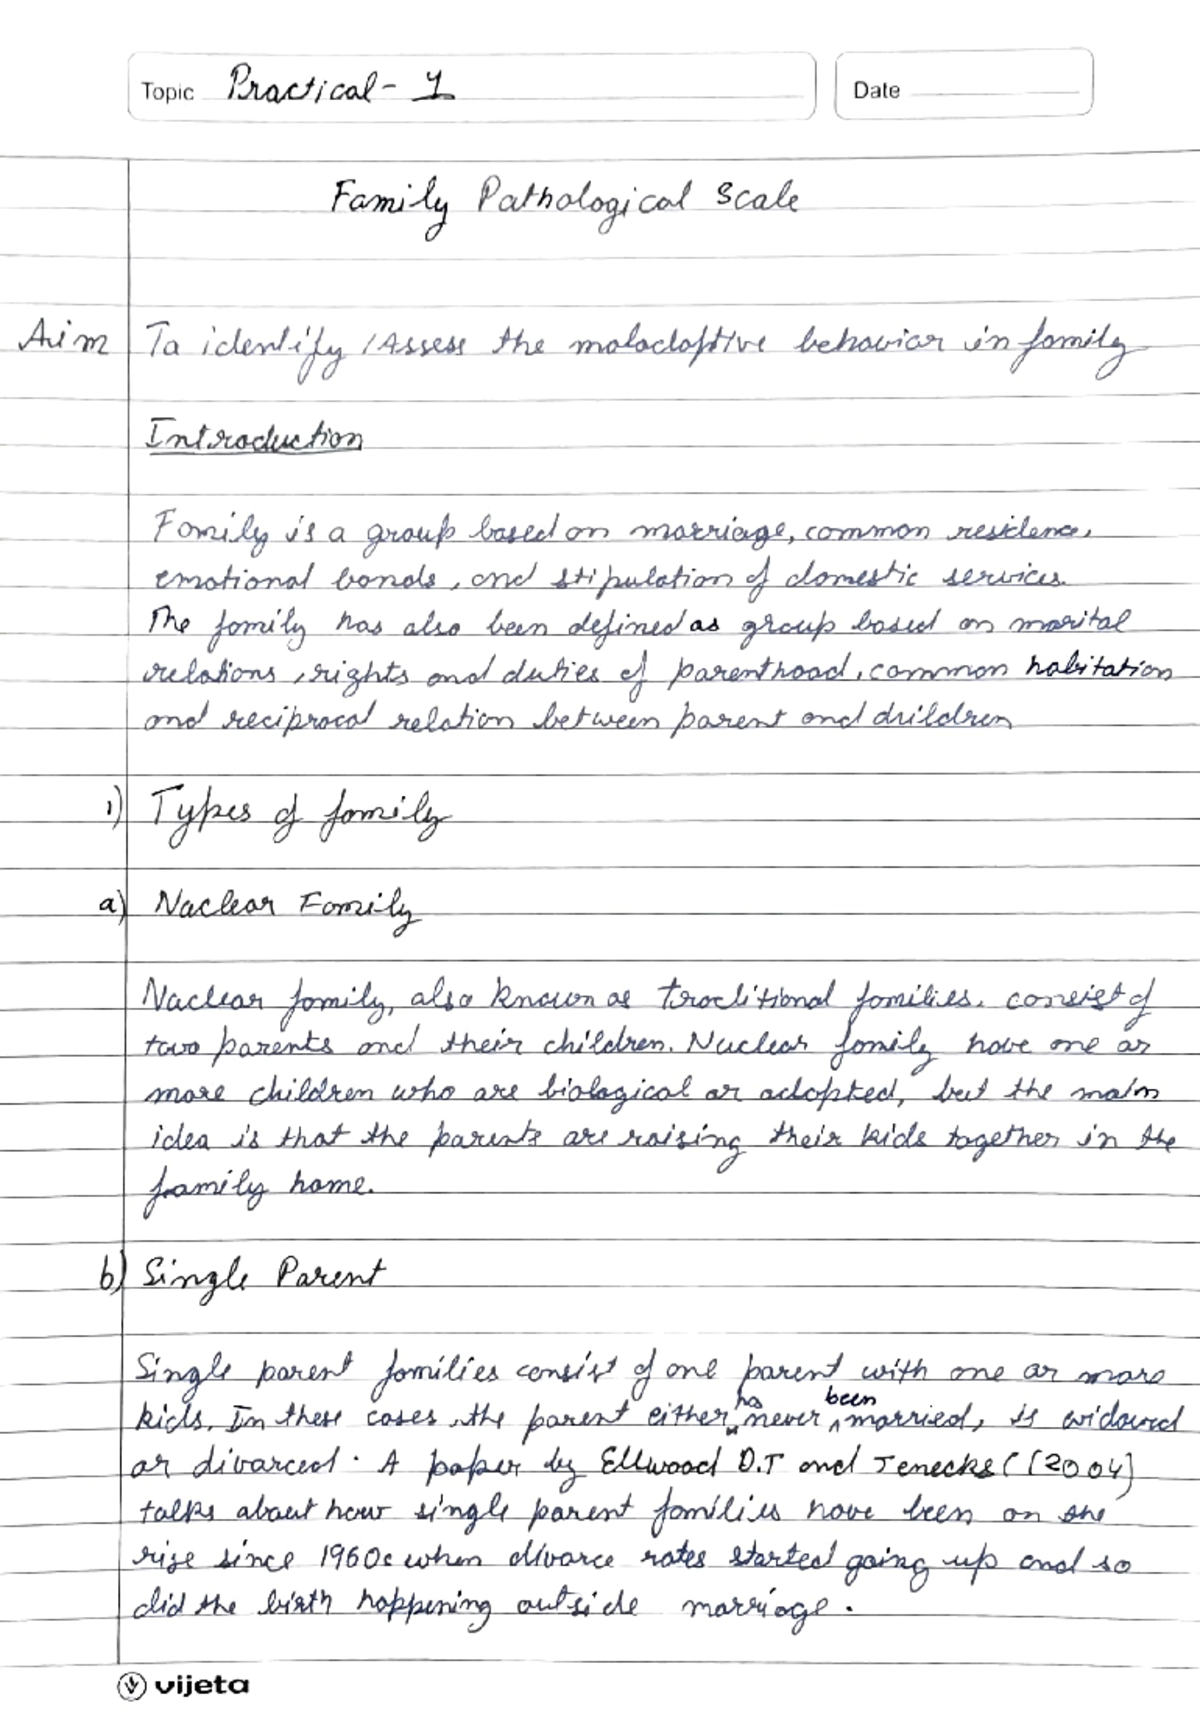 Topic Practical - 1
Date
Family Pathological Scale
Aim To identify / Assess the maladaptive behavior in family
Introduction
Family is a group based on marriage, common residence,
emotional bonds, and stipulation of domestic services.
The family has also been defined as group based on marital
relations, rights and duties of parenthood, common habitation
and reciprocal relation between parent and children
1) Types of family
a) Nuclear Family
Nuclear family, also known as traditional families. consist of
two parents and their children. Nuclear family have one or
more children who are biological or adopted, but the main
idea is that the parents are raising their kids together in the
family home.
b) Single Parent
Single parent families consist of one parent with one or more
kids. In these cases, the parent either has never been married, is widowed
or divorced. A paper by Ellwood D.T and Jenecks ( (2004)
talks about how single parent families have been on the
rise since 1960s when divorce rates started going up and so
did the birth happening outside marriage.
vijeta